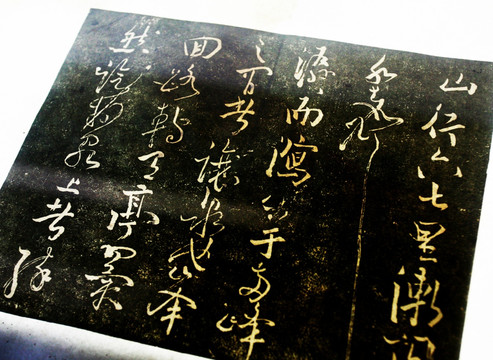 山行六七里漸聞
水聲
潺而瀉出于兩峰
之間者讓泉也峯
回路轉有亭翼
然臨於泉上者醉